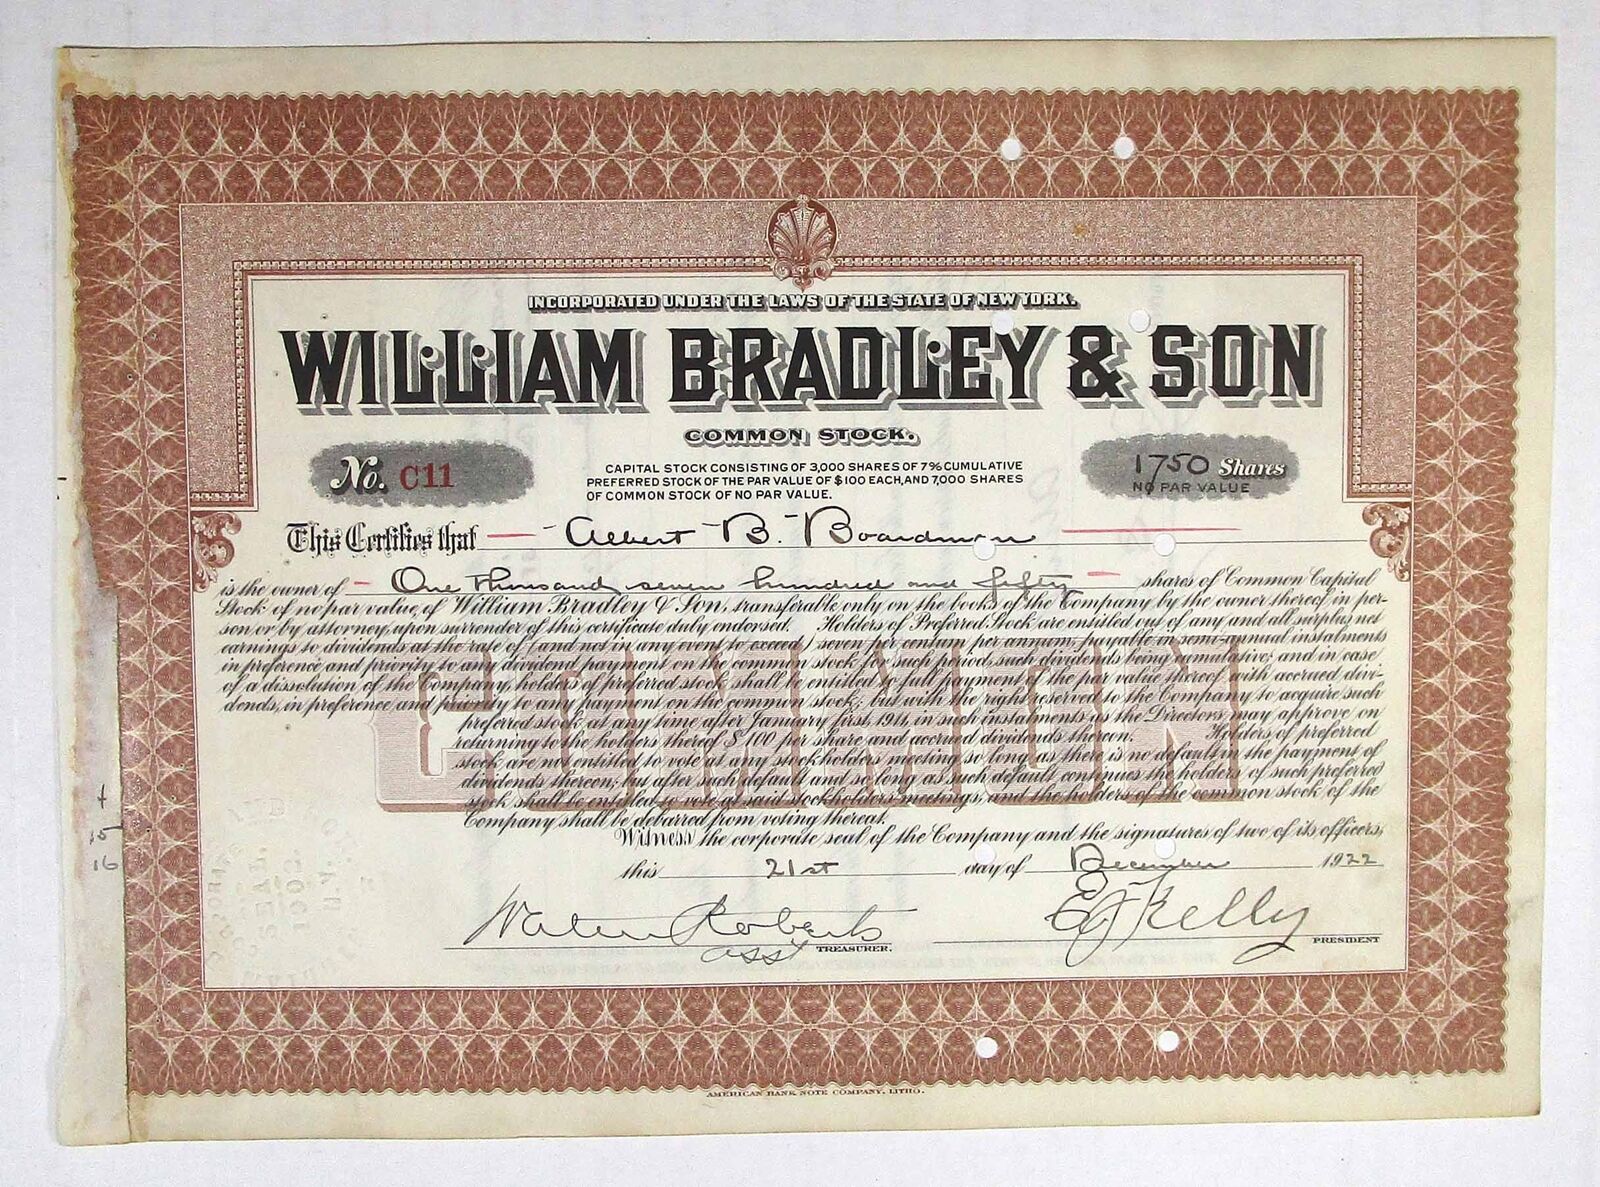 INCORPORATED UNDER THE LAWS OF THE STATE OF NEW YORK.
WILLIAM BRADLEY & SON
COMMON STOCK.
No. C11
CAPITAL STOCK CONSISTING OF 3,000 SHARES OF 7% CUMULATIVE
PREFERRED STOCK OF THE PAR VALUE OF $100 EACH, AND 7,000 SHARES
OF COMMON STOCK OF NO PAR VALUE.
1750 Shares
NO PAR VALUE
This Certifies that Albert B. Boardman
is the owner of One thousand seven hundred and fifty shares of Common Capital
Stock of no par value, of William Bradley & Son, transferable only on the books of the Company by the owner thereof in per-
son or by attorney, upon surrender of this certificate duly endorsed. Holders of Preferred Stock are entitled out of any and all surplus net
earnings to dividends at the rate of (and not in any event to exceed) seven per centum per annum, payable in semi-annual instalments
in preference and priority to any dividend payment on the common stock for such period, such dividends being cumulative; and in case
of a dissolution of the Company, holders of preferred stock shall be entitled to full payment of the par value thereof, with accrued divi-
dends, in preference and priority to any payment on the common stock; but with the right reserved to the Company to acquire such
preferred stock at any time after January first, 1911, in such instalments as the Directors may approve on
returning to the holders thereof $100 per share and accrued dividends thereon. Holders of preferred
stock are not entitled to vote at any stockholders meeting so long as there is no default in the payment of
dividends thereon; but after such default and so long as such default continues the holders of such preferred
stock shall be entitled to vote at said stockholders meetings, and the holders of the common stock of the
Company shall be debarred from voting thereat.
COMMON
Witness the corporate seal of the Company and the signatures of two of its officers,
this 21st day of December 1922
Walter Roberts
asst TREASURER.
E J Kelly
PRESIDENT
15
16
SEAL
1902
N.Y.
AMERICAN BANK NOTE COMPANY, LITHO.